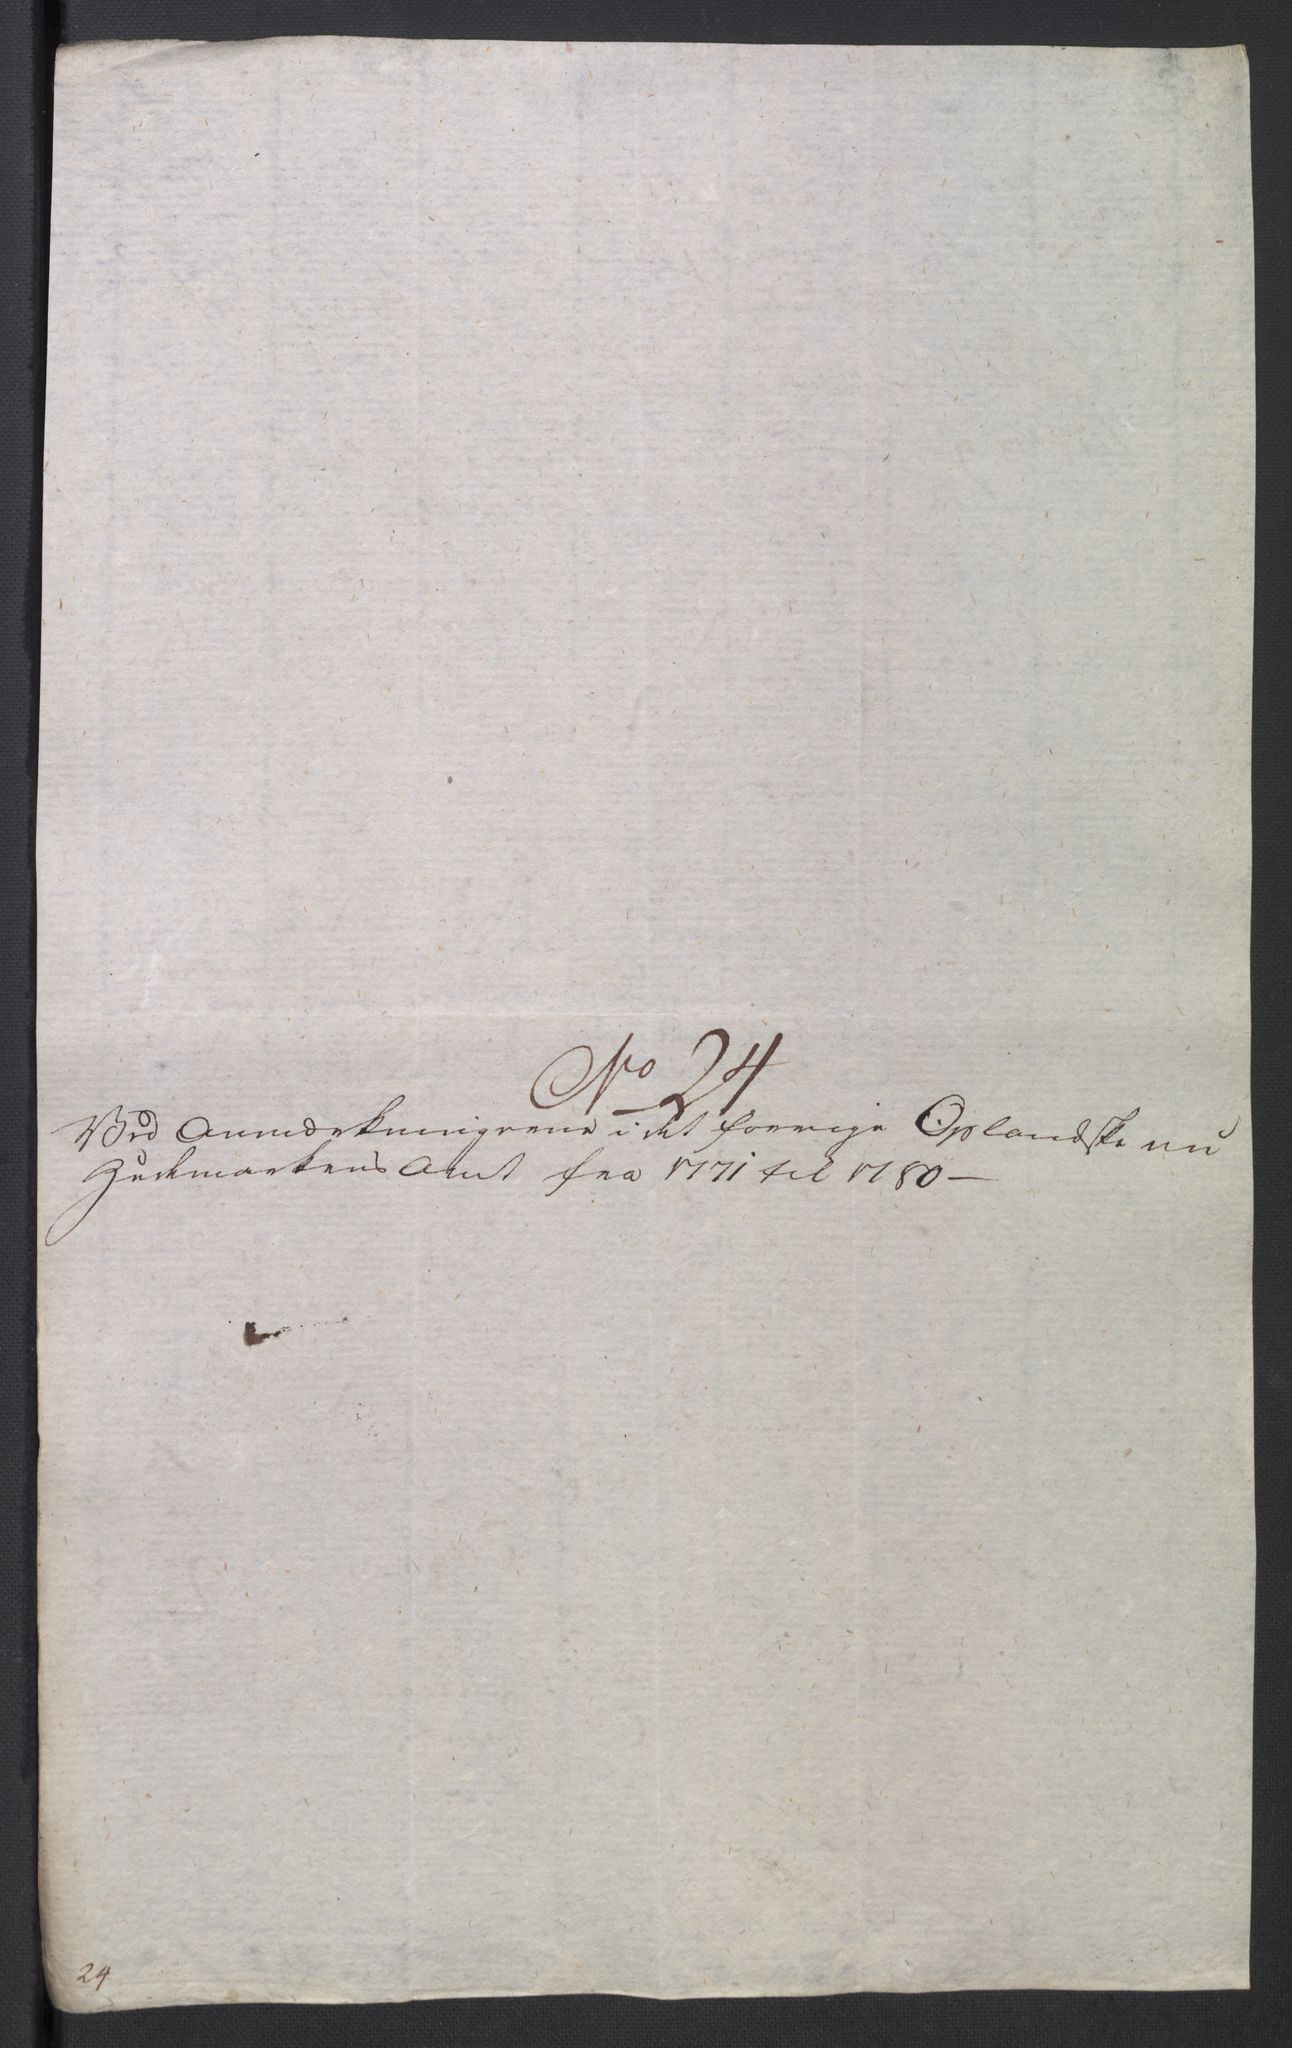 No 24
Ved Anmærkningerne i det forrige Oplandske nu
Hedemarkens Amt fra 1771 til 1780 —
24